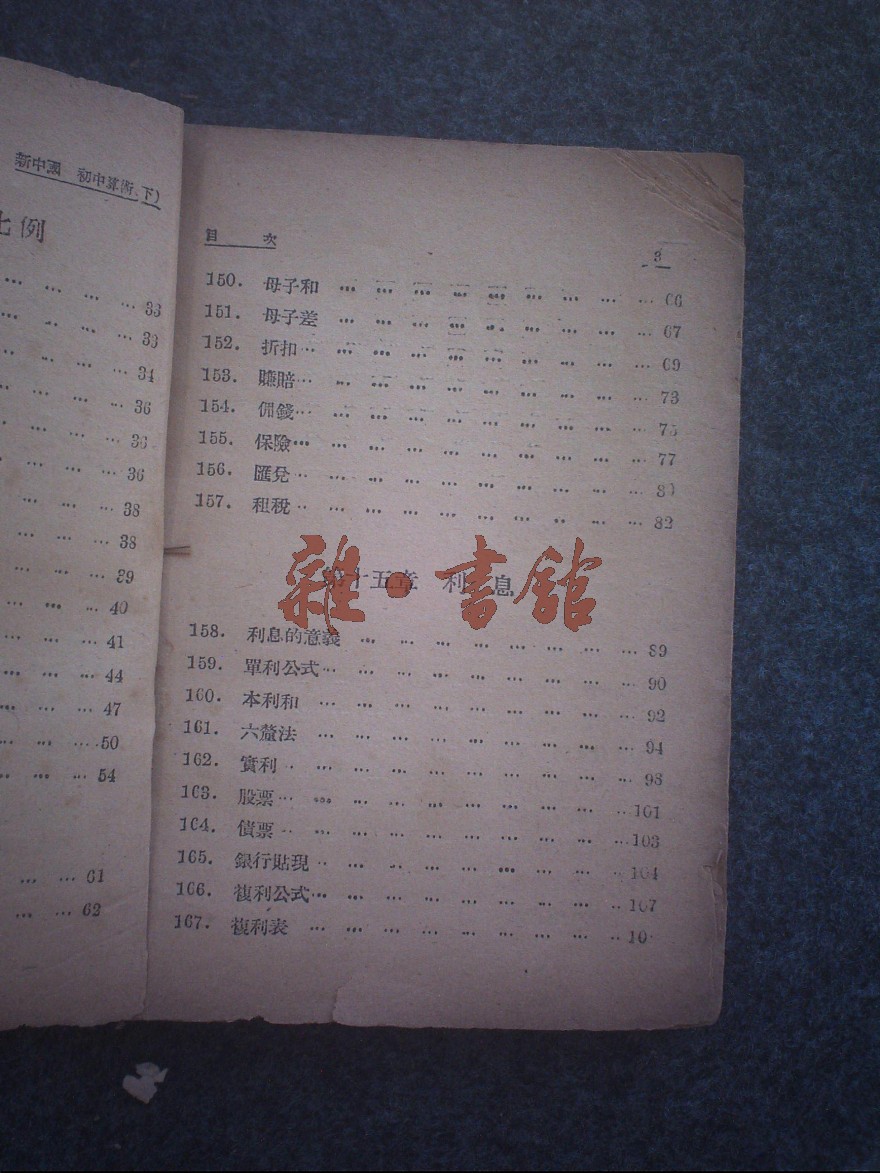 新中國 初中算術、下)
比例
... ... ... ... 33
... ... ... ... 33
... ... ... 34
... ... ... 36
... ... ... 36
... ... ... 36
... ... ... 38
... ... ... 38
... ... ... 39
... ... ... 40
... ... ... 41
... ... ... 44
... ... ... 47
... ... ... 50
... ... ... 54
... ... 61
... ... 62
目 次 3
150. 母子和 ... ... ... ... ... ... ... ... ... ... 66
151. 母子差 ... ... ... ... ... ... ... ... ... ... 67
152. 折扣 ... ... ... ... ... ... ... ... ... ... 69
153. 賺賠 ... ... ... ... ... ... ... ... ... ... 73
154. 佣錢 ... ... ... ... ... ... ... ... ... ... 75
155. 保險 ... ... ... ... ... ... ... ... ... ... 77
156. 匯兌 ... ... ... ... ... ... ... ... ... ... 80
157. 租稅 ... ... ... ... ... ... ... ... ... ... 82
第十五章 利息
158. 利息的意義 ... ... ... ... ... ... ... ... 89
159. 單利公式 ... ... ... ... ... ... ... ... ... 90
160. 本利和 ... ... ... ... ... ... ... ... ... 92
161. 六釐法 ... ... ... ... ... ... ... ... ... 94
162. 實利 ... ... ... ... ... ... ... ... ... ... 98
163. 股票 ... ... ... ... ... ... ... ... ... ... 101
164. 債票 ... ... ... ... ... ... ... ... ... ... 103
165. 銀行貼現 ... ... ... ... ... ... ... ... ... 104
166. 複利公式 ... ... ... ... ... ... ... ... ... 107
167. 複利表 ... ... ... ... ... ... ... ... ... 10
雜·書館